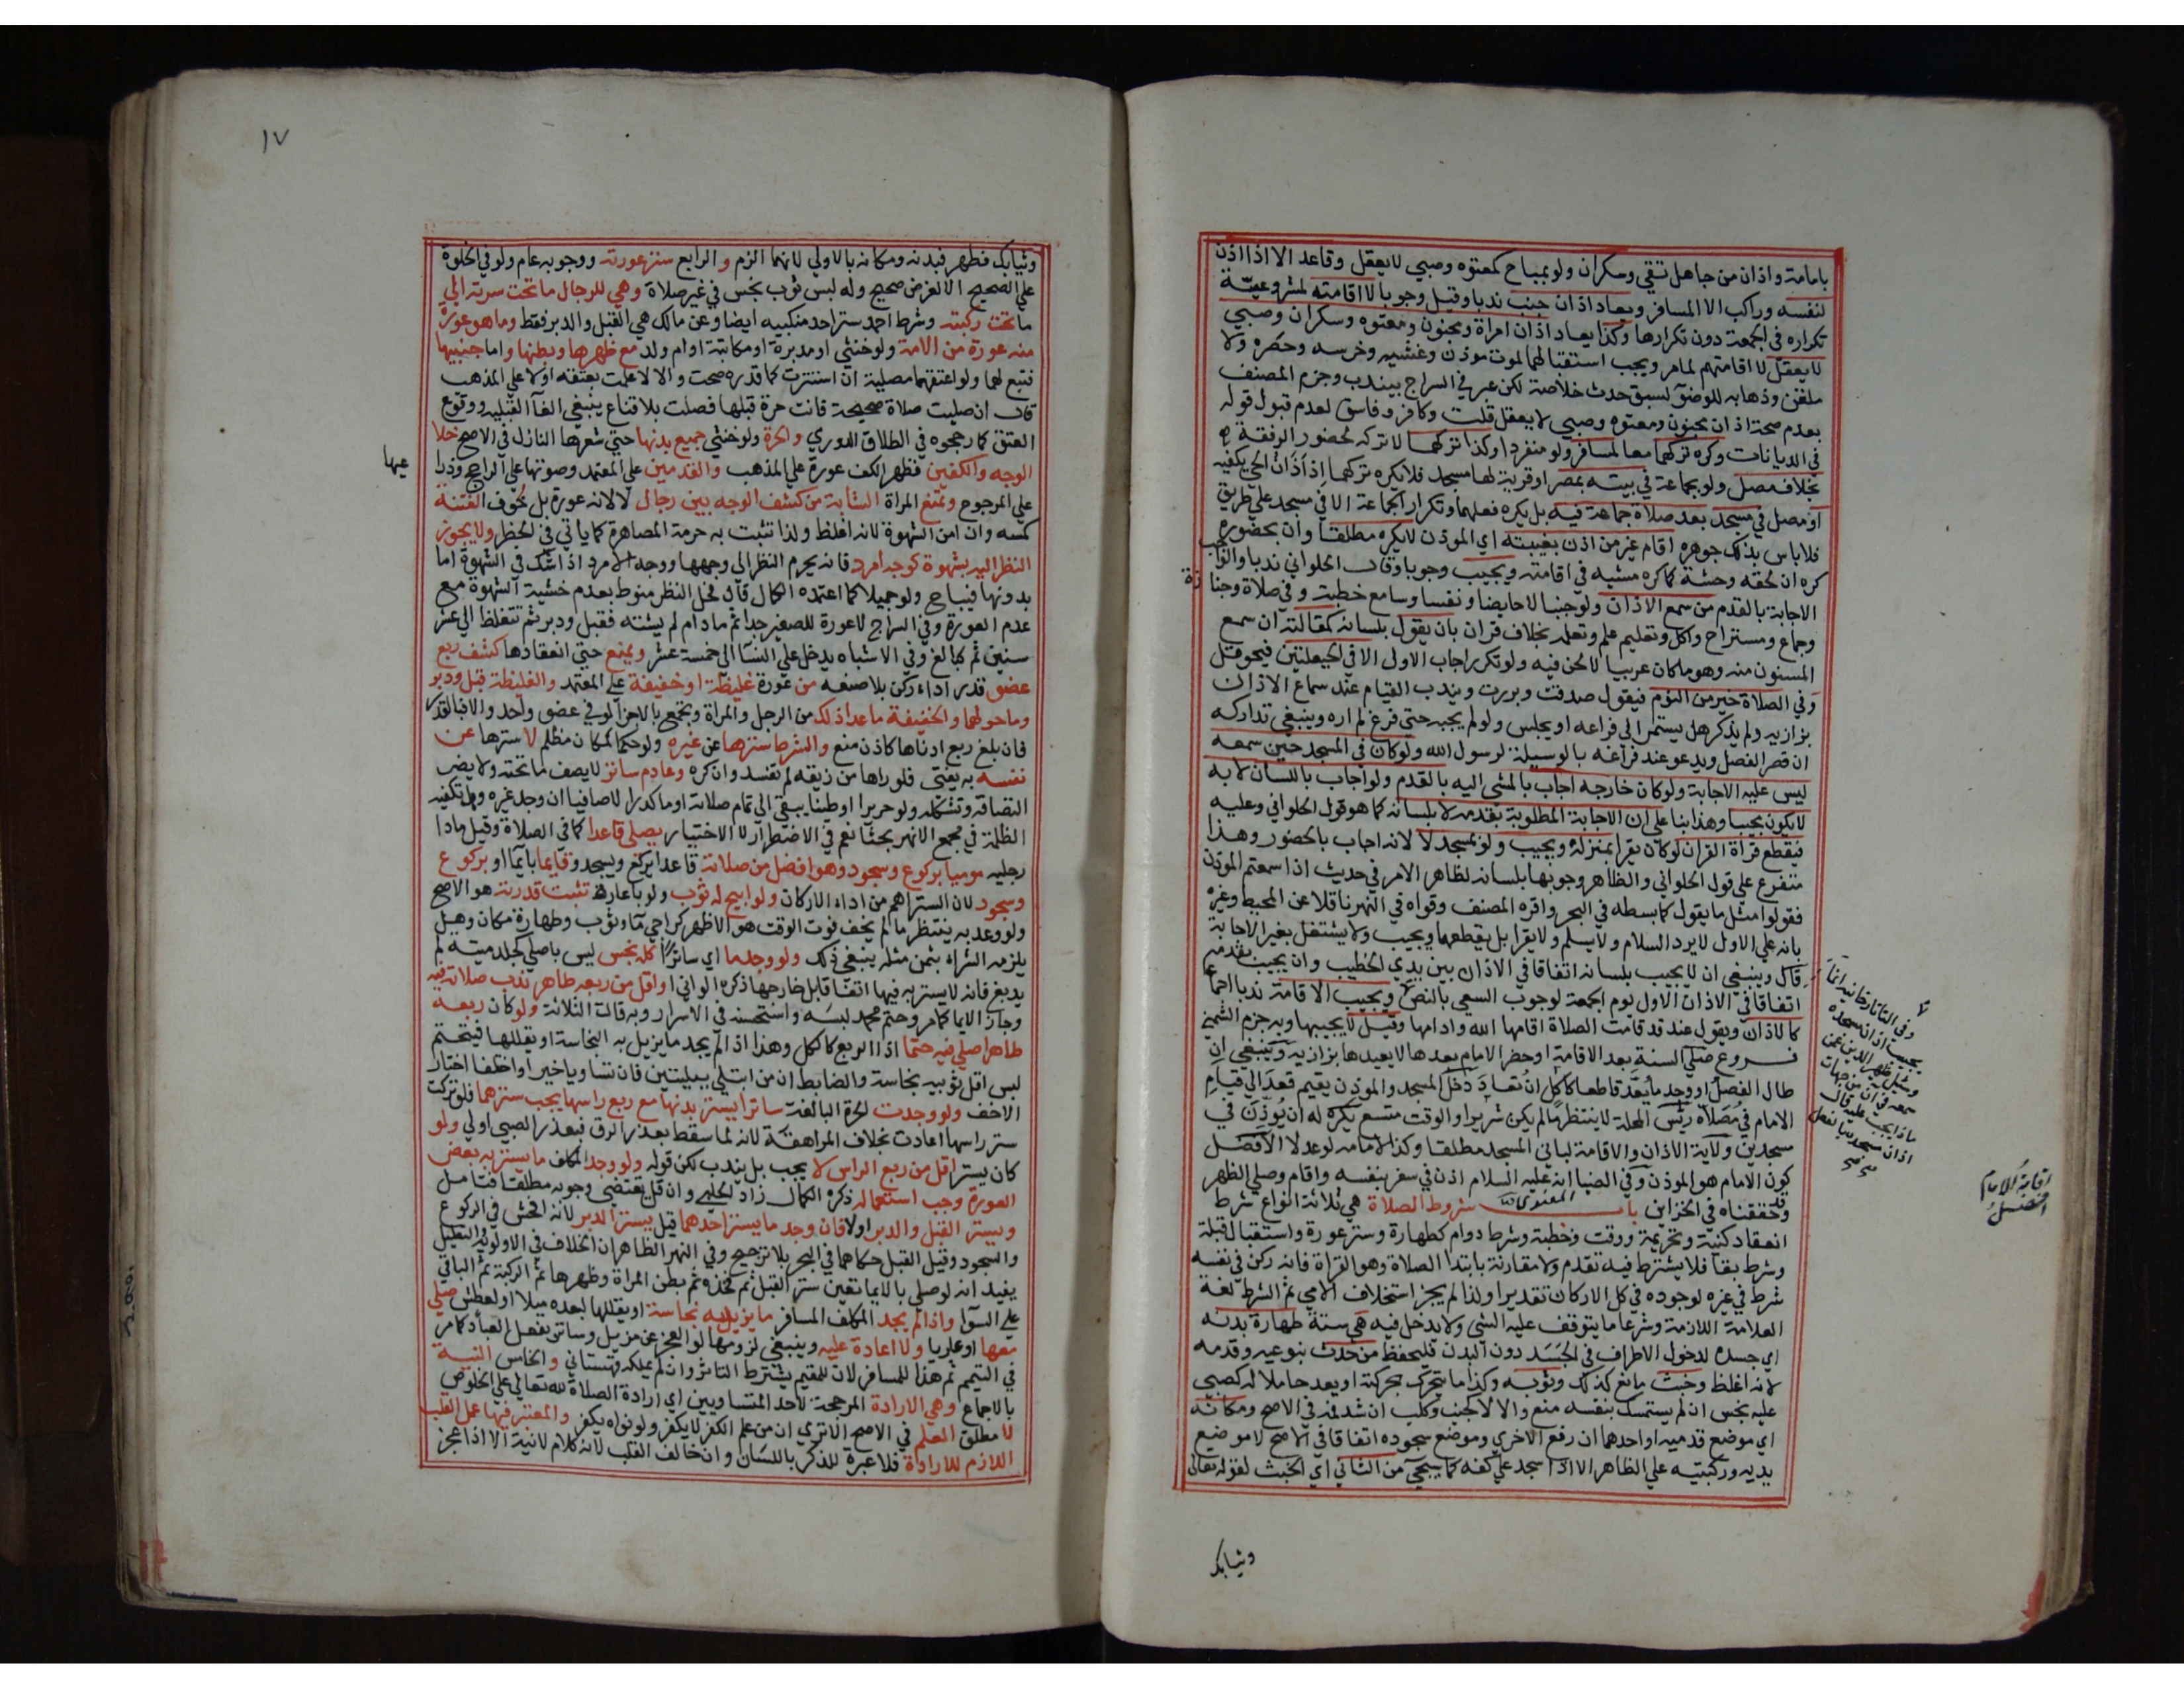 بامامة واذان من جاهل تقي وسكران ولو بمباح كمعتوه وصبي لا يعقل وقاعد الا اذا اذن
لنفسه وراكب الا المسافر ويعاد اذان جنب ندبا وقيل وجوبا لا اقامته لمشروعية
تكراره في الجمعة دون تكرارها وكذا يعاد اذان امراة ومجنون ومعتوه وسكران وصبي
لا يعقل لا اقامتهم لما مر ويجب استقبالهما لموت موذن وغشيه وخرسه وحصره ولا
ملقن وذهابه للوضوء لسبق حدث خلاصة لكن عبر في السراج بيندب وجزم المصنف
بعدم صحة اذان مجنون ومعتوه وصبي لا يعقل قلت وكافر وفاسق لعدم قبول قوله
في الديانات وكره تركهما معا لمسافر ولو منفردا وكذا تركها لا تركه لحضور الرفقة
بخلاف مصل ولو بجماعة في بيته بمصر او قرية لها مسجد فلا يكره تركهما اذ اذان الحي يكفيه
او مصل في مسجد بعد صلاة جماعة فيه بل يكره فعلهما وتكرار الجماعة الا في مسجد علي طريق
فلا باس بذلك جوهره اقام غير من اذن بغيبته اي الموذن لا يكره مطلقا وان بحضوره
كره ان لحقه وحشة كما كره مشيه في اقامته ويجيب وجوبا وقال الحلواني ندبا والواجب
الاجابة بالقدم من سمع الاذان ولو جنبا لا حايضا ونفسا وسامع خطبة وفي صلاة وجنازة
وجماع ومستراح واكل وتعليم علم وتعلمه بخلاف قران بان يقول بلسانه كمقالته ان سمع
المسنون منه وهو ما كان عربيا لا لحن فيه ولو تكرر اجاب الاول الا في الحيعلتين فيحوقل
وفي الصلاة خير من النوم فيقول صدقت وبررت ويندب القيام عند سماع الاذان
بزازيه ولم يذكر هل يستمر الي فراغه او يجلس ولو لم يجبه حتي فرغ لم اره وينبغي تداركه
ان قصر الفصل ويدعو عند فراغه بالوسيلة لرسول الله ولو كان في المسجد حين سمعه
ليس عليه الاجابة ولو كان خارجه اجاب بالمشي اليه بالقدم ولو اجاب باللسان لا به
لا يكون مجيبا وهذا بنا علي ان الاجابة المطلوبة بقدمه لا بلسانه كما هو قول الحلواني وعليه
فيقطع قراة القران لو كان يقرا بمنزله ويجيب ولو بمسجد لا لانه اجاب بالحضور وهذا
متفرع علي قول الحلواني والظاهر وجوبها بلسانه لظاهر الامر في حديث اذا سمعتم الموذن
فقولوا مثل ما يقول كما بسطه في البحر واقره المصنف وقواه في النهر ناقلا عن المحيط وغيره
بانه علي الاول لا يرد السلام ولا يسلم ولا يقرا بل يقطعها ويجيب ولا يشتغل بغير الاجابة
قال وينبغي ان لا يجيب بلسانه اتفاقا في الاذان بين يدي الخطيب وان يجيب بقدمه
اتفاقا في الاذان الاول يوم الجمعة لوجوب السعي بالنص ويجيب الاقامة ندبا اجماعا
كالاذان ويقول عند قد قامت الصلاة اقامها الله وادامها وقيل لا يجيبها وبه جزم الشمني
فروع صلي السنة بعد الاقامة او حضر الامام بعدها لا يعيدها بزازيه وينبغي ان
طال الفصل او وجد ما يعد قاطعا كاكل ان تعاد دخل المسجد والموذن يقيم قعد الي قيام
الامام في مصلاه رئس المحلة لا ينتظر ما لم يكن شريرا والوقت متسع يكره له ان يوذن في
مسجدين ولاية الاذان والاقامة لباني المسجد مطلقا وكذا الامامه لو عدلا الافضل
كون الامام هو الموذن وفي الضيا انه عليه السلام اذن في سفر بنفسه واقام وصلي الظهر
وقد حققناه في الخزاين باب شروط الصلاة هي ثلاثة انواع شرط
انعقاد كنية وتحريمة ووقت وخطبة وشرط دوام كطهارة وستر عورة واستقبال قبلة
وشرط بقا فلا يشترط فيه تقدم ولا مقارنة بابتدا الصلاة وهو القراة فانه ركن في نفسه
شرط في غيره لوجوده في كل الاركان تقديرا ولذا لم يجز استخلاف الامي ثم الشرط لغة
العلامة اللازمة وشرعا ما يتوقف عليه الشي ولا يدخل فيه هي ستة طهارة بدنه
اي جسده لدخول الاطراف في الجسد دون البدن فليحفظ من حدث بنوعيه وقدمه
لانه اغلظ وخبث مانع كذلك وثوبه وكذا ما يتحرك بحركته او يعد حاملا له كصبي
عليه نجس ان لم يستمسك بنفسه منع والا لا كجنب وكلب ان شد فمه في الاصح ومكانه
اي موضع قدميه او احدهما ان رفع الاخري وموضع سجوده اتفاقا في الاصح لا موضع
يديه وركبتيه علي الظاهر الا اذا سجد علي كفه كما سيجي من الثاني اي الخبث لقوله تعالى
وثيابك
وفي التاتارخانيه انما
يجيب اذان مسجده
وسئل ظهير الدين عن
سمعه في ان من جهات
ماذا يجب عليه قال
اذان مسجده بالفعل
اقامة الامام
افضل
١٧
وثيابك فطهر فبدنه ومكانه بالاولي لانهما الزم والرابع ستر عورته ووجوبه عام ولو في الخلوة
علي الصحيح الا لغرض صحيح وله لبس ثوب نجس في غير صلاة وهي للرجال ما تحت سرته الي
ما تحت ركبته وشرط احمد ستر احد منكبيه ايضا وعن مالك هي القبل والدبر فقط وما هو عورة
منه عورة من الامة ولو خنثي او مدبرة او مكاتبة او ام ولد مع ظهرها وبطنها واما جنبيها
فتبع لهما ولو اعتقها مصلية ان استترت كما قدره صحت والا لا علمت بعتقه اولا علي المذهب
قال ان صليت صلاة صحيحة فانت حرة قبلها فصلت بلا قناع ينبغي الغآ القبليه ووقوع
العتق كما رجحوه في الطلاق الدوري والحرة ولو خنثي جميع بدنها حتي شعرها النازل في الاصح خلا
الوجه والكفين فظهر الكف عورة علي المذهب والقدمين علي المعتمد وصوتها علي الراجح وذرا
عيها
علي المرجوح وتمنع المراة الشابة من كشف الوجه بين رجال لا لانه عورة بل لخوف الفتنة
كمسه وان امن الشهوة لانه اغلظ ولذا تثبت به حرمة المصاهرة كما ياتي في الحظر ولا يجوز
النظر اليه بشهوة كوجه امرد فانه يحرم النظر الي وجهها ووجه الامرد اذا شك في الشهوة اما
بدونها فيباح ولو جميلا كما اعتمده الكمال قال فحل النظر منوط بعدم خشية الشهوة مع
عدم العورة وفي السراج لا عورة للصغير جدا ثم ما دام لم يشته فقبل ودبر ثم تتغلظ الي عشر
سنين ثم كبالغ وفي الاشباه يدخل علي النسآ الي خمسة عشر ويمنع حتي انعقادها كشف ربع
عضو قدر اداء ركن بلا صنعه من عورة غليظة او خفيفة علي المعتمد والغليظة قبل ودبر
وما حولهما والخفيفة ما عدا ذلك من الرجل والمراة وتجمع بالاجزا لو في عضو واحد والا فبالقدر
فان بلغ ربع ادناها كاذن منع والشرط سترها عن غيره ولو حكما لمكان مظلم لا سترها عن
نفسه به يفتي فلو راها من زيقه لم تفسد وان كره وعادم ساتر لا يصف ما تحته ولا يضر
التصاقه وتشكله ولو حريرا او طينا يبقي الي تمام صلاته او ما كدرا لا صافيا ان وجد غيره وهل تكفيه
الظلمة في مجمع الانهر بحثا نعم في الاضطرار لا الاختيار يصلي قاعدا كما في الصلاة وقيل مادا
رجليه موميا بركوع وسجود وهو افضل من صلاته قاعدا يركع ويسجد وقايما بايمآ او بركوع
وسجود لان الستر اهم من اداء الاركان ولو ابيح له ثوب ولو باعارة ثبتت قدرته هو الاصح
ولو وعد به ينتظر ما لم يخف فوت الوقت هو الاظهر كراجي مآ وثوب وطهارة مكان وهل
يلزمه الشراء بثمن مثله ينبغي ذلك ولو وجد ما اي ساترا كله نجس ليس باصلي كجلد ميتة لم
يدبغ فانه لا يستر به فيها اتفاقا بل خارجها ذكره الواني او اقل من ربعه طاهر ندب صلاته فيه
وجاز الايما كما مر وحتم محمد لبسه واستحسنه في الاسرار وبه قالت الثلاثة ولو كان ربعه
طاهرا صلي فيه حتما اذ الربع كالكل وهذا اذا لم يجد ما يزيل به النجاسة او يقللها فيتحتم
لبس اقل ثوبيه نجاسة والضابط ان من ابتلي ببليتين فان تساويا خير او اختلفا اختار
الاخف ولو وجدت الحرة البالغة ساترا يستر بدنها مع ربع راسها يجب سترهما فلو تركت
ستر راسها اعادت بخلاف المراهقة لانه لما سقط بعذر الرق فبعذر الصبي اولي ولو
كان يستر اقل من ربع الراس لا يجب بل يندب لكن قوله ولو وجد المكلف ما يستر به بعض
العورة وجب استعماله ذكره الكمال زاد الحلبي وان قل يقتضي وجوبه مطلقا فتامل
ويستر القبل والدبر اولا فان وجد ما يستر احدهما قيل يستر الدبر لانه افحش في الركوع
والسجود وقيل القبل حكاهما في البحر بلا ترجيح وفي النهر الظاهر ان الخلاف في الاولوية والتعليل
يفيد انه لو صلي بالايما تعين ستر القبل ثم فخذه ثم بطن المراة وظهرها ثم الركبة ثم الباقي
علي السوآ واذا لم يجد المكلف المسافر ما يزيل به نجاسة او يقللها لبعده ميلا او لعطش صلي
معها او عاريا ولا اعادة عليه وينبغي لزومها لو العجز عن مزيل وساتر بفعل العباد كما مر
في التيمم ثم هذا للمسافر لان للمقيم يشترط الساتر وان لم يملكه قهستاني والخامس النية
بالاجماع وهي الارادة المرجحة لاحد المتساويين اي ارادة الصلاة لله تعالي علي الخلوص
لا مطلق العلم في الاصح الا تري ان من علم الكفر لا يكفر ولو نواه يكفر والمعتبر فيها عمل القلب
اللازم للارادة فلا عبرة للذكر باللسان وان خالف القلب لانه كلام لا نية الا اذا عجز